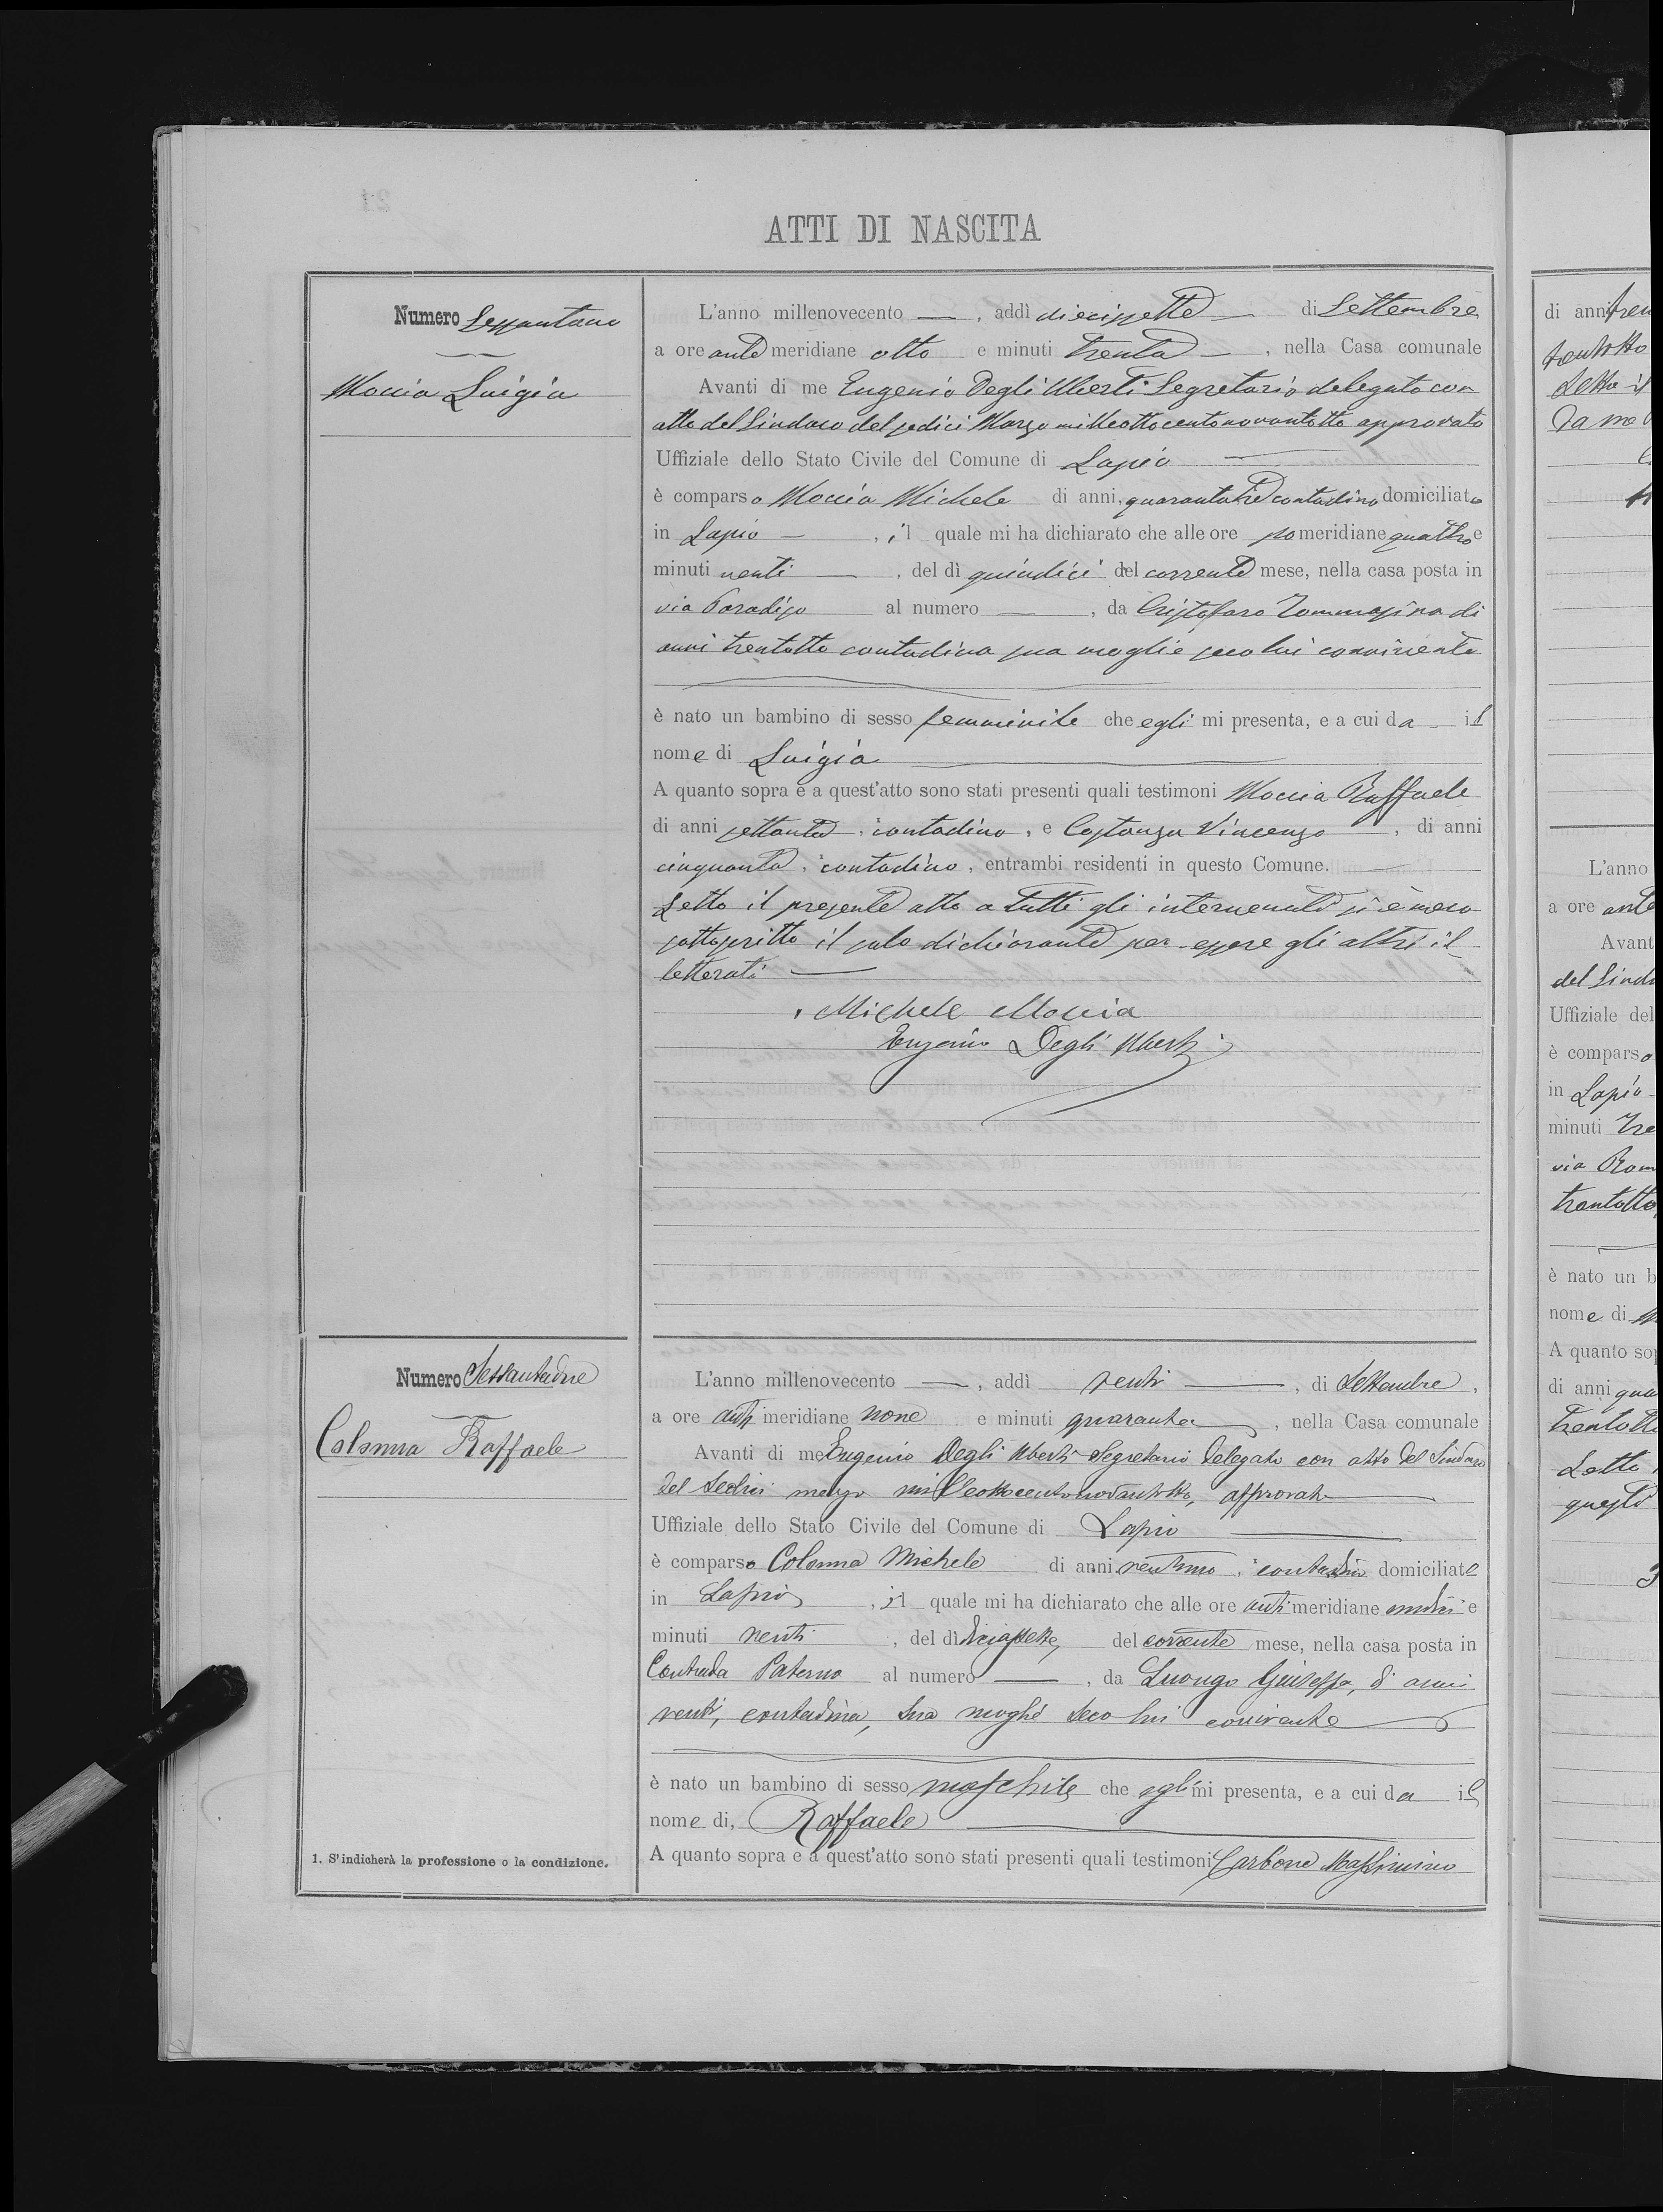 ATTI DI NASCITA
Numero Sessantuno
Moccia Luigia
L'anno millenovecento —, addì diecissette — di Settembre
a ore ante meridiane otto e minuti trenta —, nella Casa comunale
Avanti di me Eugenio Degli Uberti Segretario delegato con
atto del Sindaco del sedici Marzo milleottocentonovantotto approvato
Uffiziale dello Stato Civile del Comune di Lapio —
è comparso Moccia Michele di anni, quarantatre contadino domiciliato
in Lapio —, il quale mi ha dichiarato che alle ore pomeridiane quattro e
minuti venti —, del dì quindici del corrente mese, nella casa posta in
via Paradiso al numero —, da Cristofaro Tommasina di
anni trentotto contadina sua moglie seco lui convivente
è nato un bambino di sesso femminile che egli mi presenta, e a cui da il
nome di Luigia —
A quanto sopra e a quest'atto sono stati presenti quali testimoni Moccia Raffaele
di anni settanta, contadino, e Costanza Vincenzo —, di anni
cinquanta, contadino, entrambi residenti in questo Comune. —
Letto il presente atto a tutti gli intervenuti si è meco
sottoscritto il solo dichiarante per essere gli altri il-
letterati —
Michele Moccia
Eugenio Degli Uberti
Numero Sessantadue
Colonna Raffaele
L'anno millenovecento —, addì venti —, di Settembre,
a ore anti meridiane nove e minuti quaranta —, nella Casa comunale
Avanti di me Eugenio Degli Uberti Segretario Delegato con atto del Sindaco
del sedici marzo milleottocentonovantotto, approvato —
Uffiziale dello Stato Civile del Comune di Lapio —
è comparso Colonna Michele di anni ventuno, contadino domiciliato
in Lapio, il quale mi ha dichiarato che alle ore anti meridiane undici e
minuti venti, del dì diciassette, del corrente mese, nella casa posta in
Contrada Paterno al numero —, da Luongo Giuseppa, di anni
venti, contadina, sua moglie seco lui convivente
è nato un bambino di sesso maschile che egli mi presenta, e a cui da il
nome di, Raffaele —
A quanto sopra e a quest'atto sono stati presenti quali testimoni Carbone Massimino
1. S'indicherà la professione o la condizione.
di anni tren
tentotto
Letto il
Da me
L'anno
a ore ante
Avant
del Sinda
Uffiziale del
è comparso
in Lapio
minuti Tre
via Rom
trentotto
è nato un b
nome di
A quanto sop
di anni qua
trentotto
Letto
questo